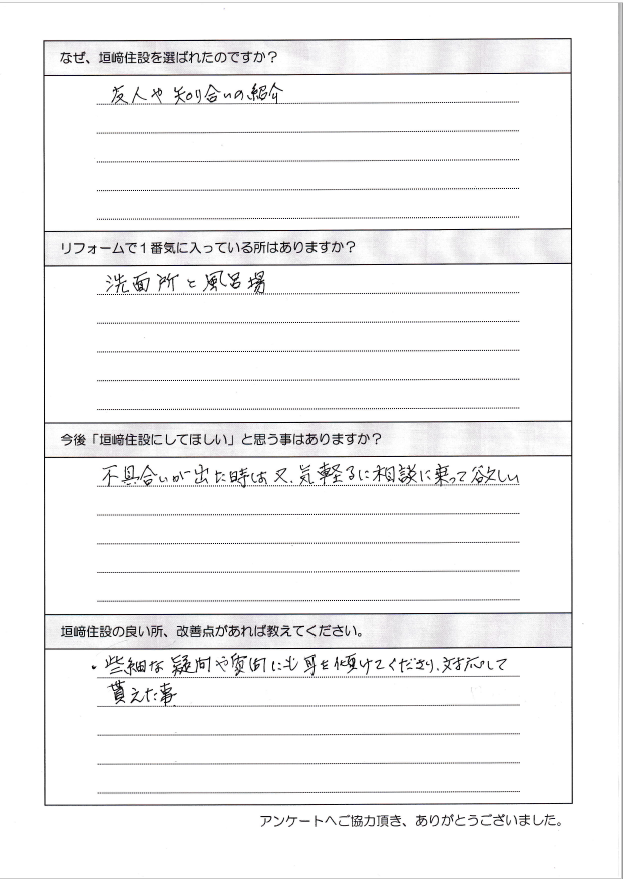 なぜ、垣﨑住設を選ばれたのですか？
友人や知り合いの紹介
リフォームで１番気に入っている所はありますか？
洗面所と風呂場
今後「垣﨑住設にしてほしい」と思う事はありますか？
不具合いが出た時は又、気軽るに相談に乗って欲しい
垣﨑住設の良い所、改善点があれば教えてください。
・些細な疑問や質問にも耳を傾けてくださり、対応して
貰えた事
アンケートへご協力頂き、ありがとうございました。